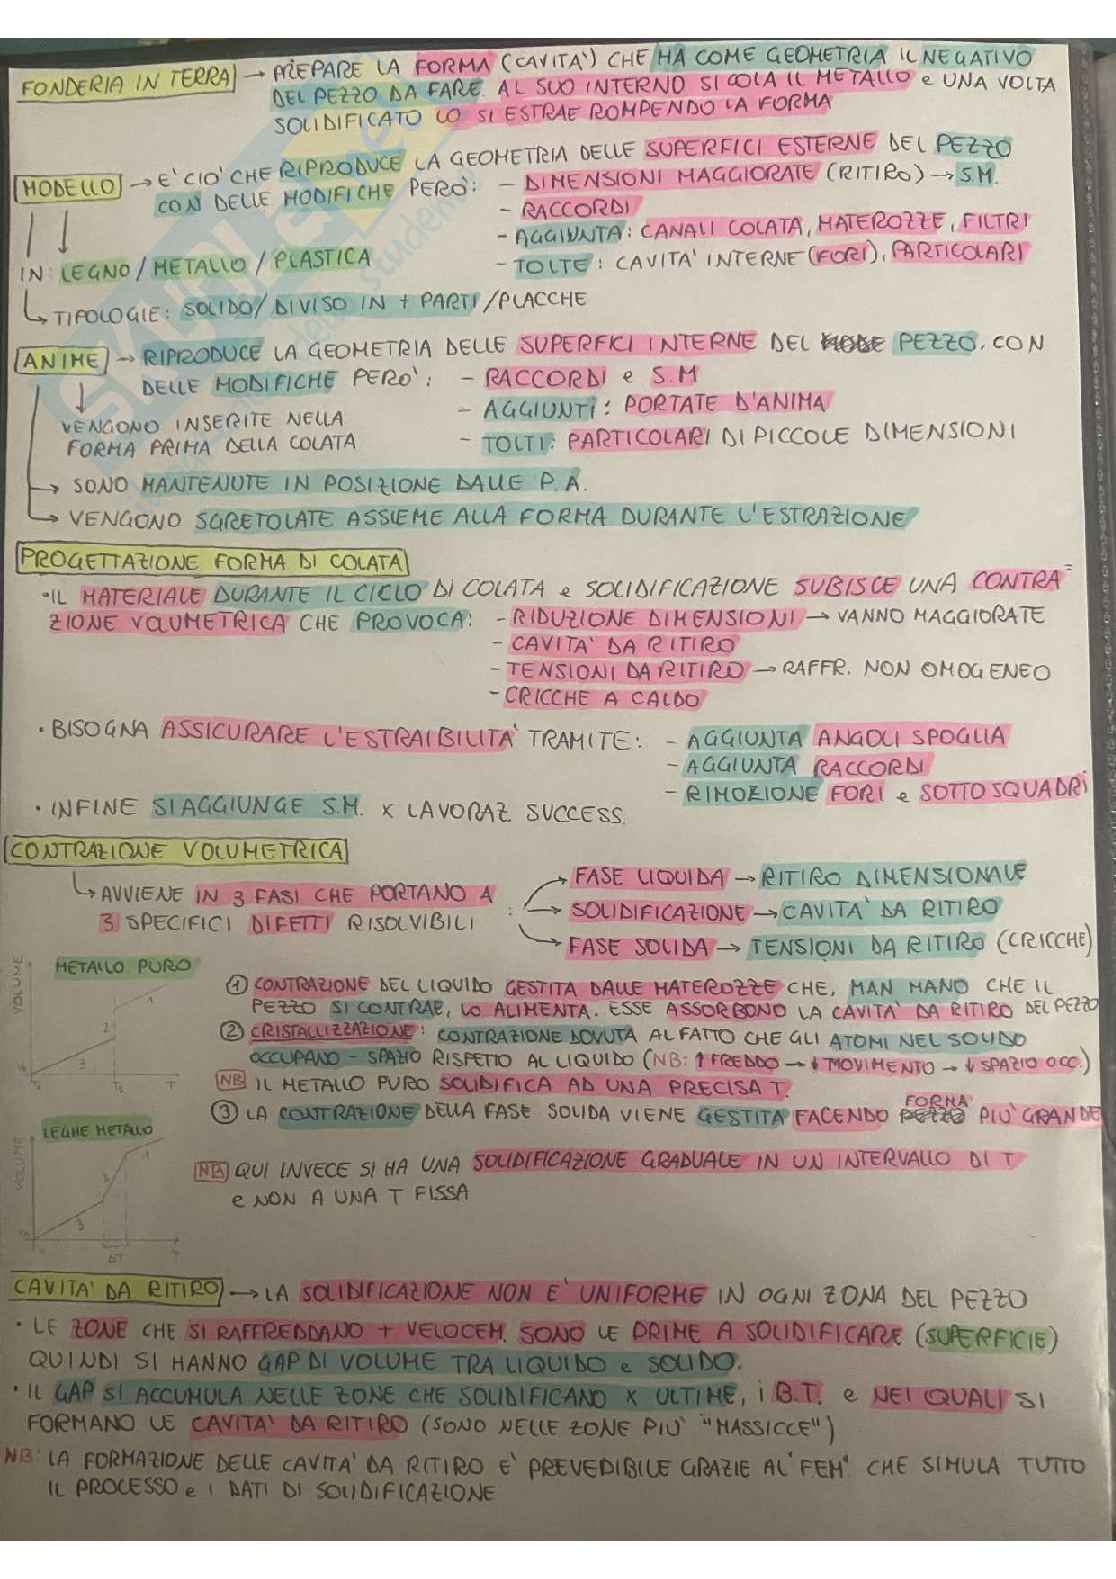 FONDERIA IN TERRA → PREPARE LA FORMA (CAVITA') CHE HA COME GEOMETRIA IL NEGATIVO
DEL PEZZO DA FARE. AL SUO INTERNO SI COLA IL METALLO e UNA VOLTA
SOLIDIFICATO LO SI ESTRAE ROMPENDO LA FORMA
MODELLO → E' CIO' CHE RIPRODUCE LA GEOMETRIA DELLE SUPERFICI ESTERNE DEL PEZZO
CON DELLE MODIFICHE PERO': - DIMENSIONI MAGGIORATE (RITIRO) → S.M.
- RACCORDI
- AGGIUNTA: CANALI COLATA, MATEROZZE, FILTRI
IN: LEGNO / METALLO / PLASTICA - TOLTE: CAVITA' INTERNE (FORI), PARTICOLARI
↳ TIPOLOGIE: SOLIDO / DIVISO IN + PARTI / PLACCHE
ANIME → RIPRODUCE LA GEOMETRIA DELLE SUPERFICI INTERNE DEL PEZZO. CON
DELLE MODIFICHE PERO': - RACCORDI e S.M
VENGONO INSERITE NELLA - AGGIUNTI: PORTATE D'ANIMA
FORMA PRIMA DELLA COLATA - TOLTI: PARTICOLARI DI PICCOLE DIMENSIONI
→ SONO MANTENUTE IN POSIZIONE DALLE P.A.
→ VENGONO SGRETOLATE ASSIEME ALLA FORMA DURANTE L'ESTRAZIONE
PROGETTAZIONE FORMA DI COLATA
• IL MATERIALE DURANTE IL CICLO DI COLATA e SOLIDIFICAZIONE SUBISCE UNA CONTRA=
ZIONE VOLUMETRICA CHE PROVOCA: - RIDUZIONE DIMENSIONI → VANNO MAGGIORATE
- CAVITA' DA RITIRO
- TENSIONI DA RITIRO → RAFFR. NON OMOGENEO
- CRICCHE A CALDO
• BISOGNA ASSICURARE L'ESTRAIBILITA' TRAMITE: - AGGIUNTA ANGOLI SPOGLIA
- AGGIUNTA RACCORDI
- RIMOZIONE FORI e SOTTOSQUADRI
• INFINE SI AGGIUNGE S.M. x LAVORAZ SUCCESS.
CONTRAZIONE VOLUMETRICA
↳ AVVIENE IN 3 FASI CHE PORTANO A
3 SPECIFICI DIFETTI RISOLVIBILI :
→ FASE LIQUIDA → RITIRO DIMENSIONALE
→ SOLIDIFICAZIONE → CAVITA' DA RITIRO
→ FASE SOLIDA → TENSIONI DA RITIRO (CRICCHE)
METALLO PURO
VOLUME
1
2
3
T
① CONTRAZIONE DEL LIQUIDO GESTITA DALLE MATEROZZE CHE, MAN MANO CHE IL
PEZZO SI CONTRAE, LO ALIMENTA. ESSE ASSORBONO LA CAVITA' DA RITIRO DEL PEZZO
② CRISTALLIZZAZIONE: CONTRAZIONE DOVUTA AL FATTO CHE GLI ATOMI NEL SOLIDO
OCCUPANO - SPAZIO RISPETTO AL LIQUIDO (NB: ↑ FREDDO → ↓ MOVIMENTO → ↓ SPAZIO OCC.)
NB IL METALLO PURO SOLIDIFICA AD UNA PRECISA T.
FORMA
③ LA CONTRAZIONE DELLA FASE SOLIDA VIENE GESTITA FACENDO PEZZO PIU' GRANDE
LEGHE METALLO
VOLUME
1
3
T
ΔT
NB QUI INVECE SI HA UNA SOLIDIFICAZIONE GRADUALE IN UN INTERVALLO DI T
e NON A UNA T FISSA
CAVITA' DA RITIRO → LA SOLIDIFICAZIONE NON E' UNIFORME IN OGNI ZONA DEL PEZZO
• LE ZONE CHE SI RAFFREDDANO + VELOCEM. SONO LE PRIME A SOLIDIFICARE (SUPERFICIE)
QUINDI SI HANNO GAP DI VOLUME TRA LIQUIDO e SOLIDO.
• IL GAP SI ACCUMULA NELLE ZONE CHE SOLIDIFICANO x ULTIME, i B.T. e NEI QUALI SI
FORMANO LE CAVITA' DA RITIRO (SONO NELLE ZONE PIU' "MASSICCE")
NB: LA FORMAZIONE DELLE CAVITA' DA RITIRO E' PREVEDIBILE GRAZIE AL "FEM" CHE SIMULA TUTTO
IL PROCESSO e I DATI DI SOLIDIFICAZIONE